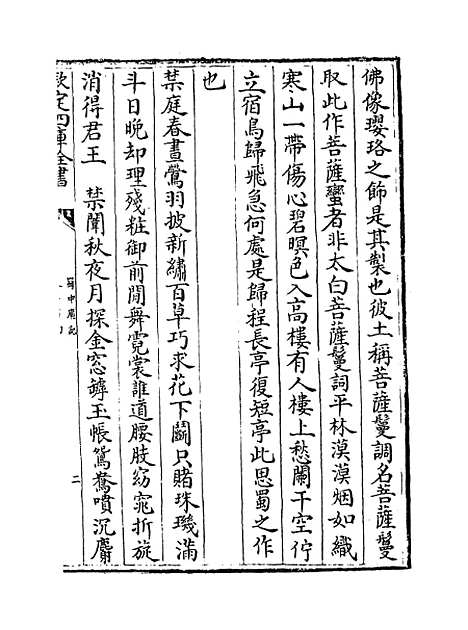 佛像瓔珞之飾是其製也彼土稱菩薩鬘調名菩薩鬘
取此作菩薩蠻者非太白菩薩鬘詞平林漠漠烟如織
寒山一帶傷心碧暝色入高樓有人樓上愁闌干空佇
立宿鳥歸飛急何處是歸程長亭復短亭此思蜀之作
也
禁庭春晝鶯羽披新繡百草巧求花下鬬只賭珠璣滿
斗日晚却理殘粧御前閒舞霓裳誰道腰肢窈窕折旋
消得君王　禁闈秋夜月探金窓罅玉帳鴛鴦噴沉麝
欽定四庫全書
蜀中廣記
二